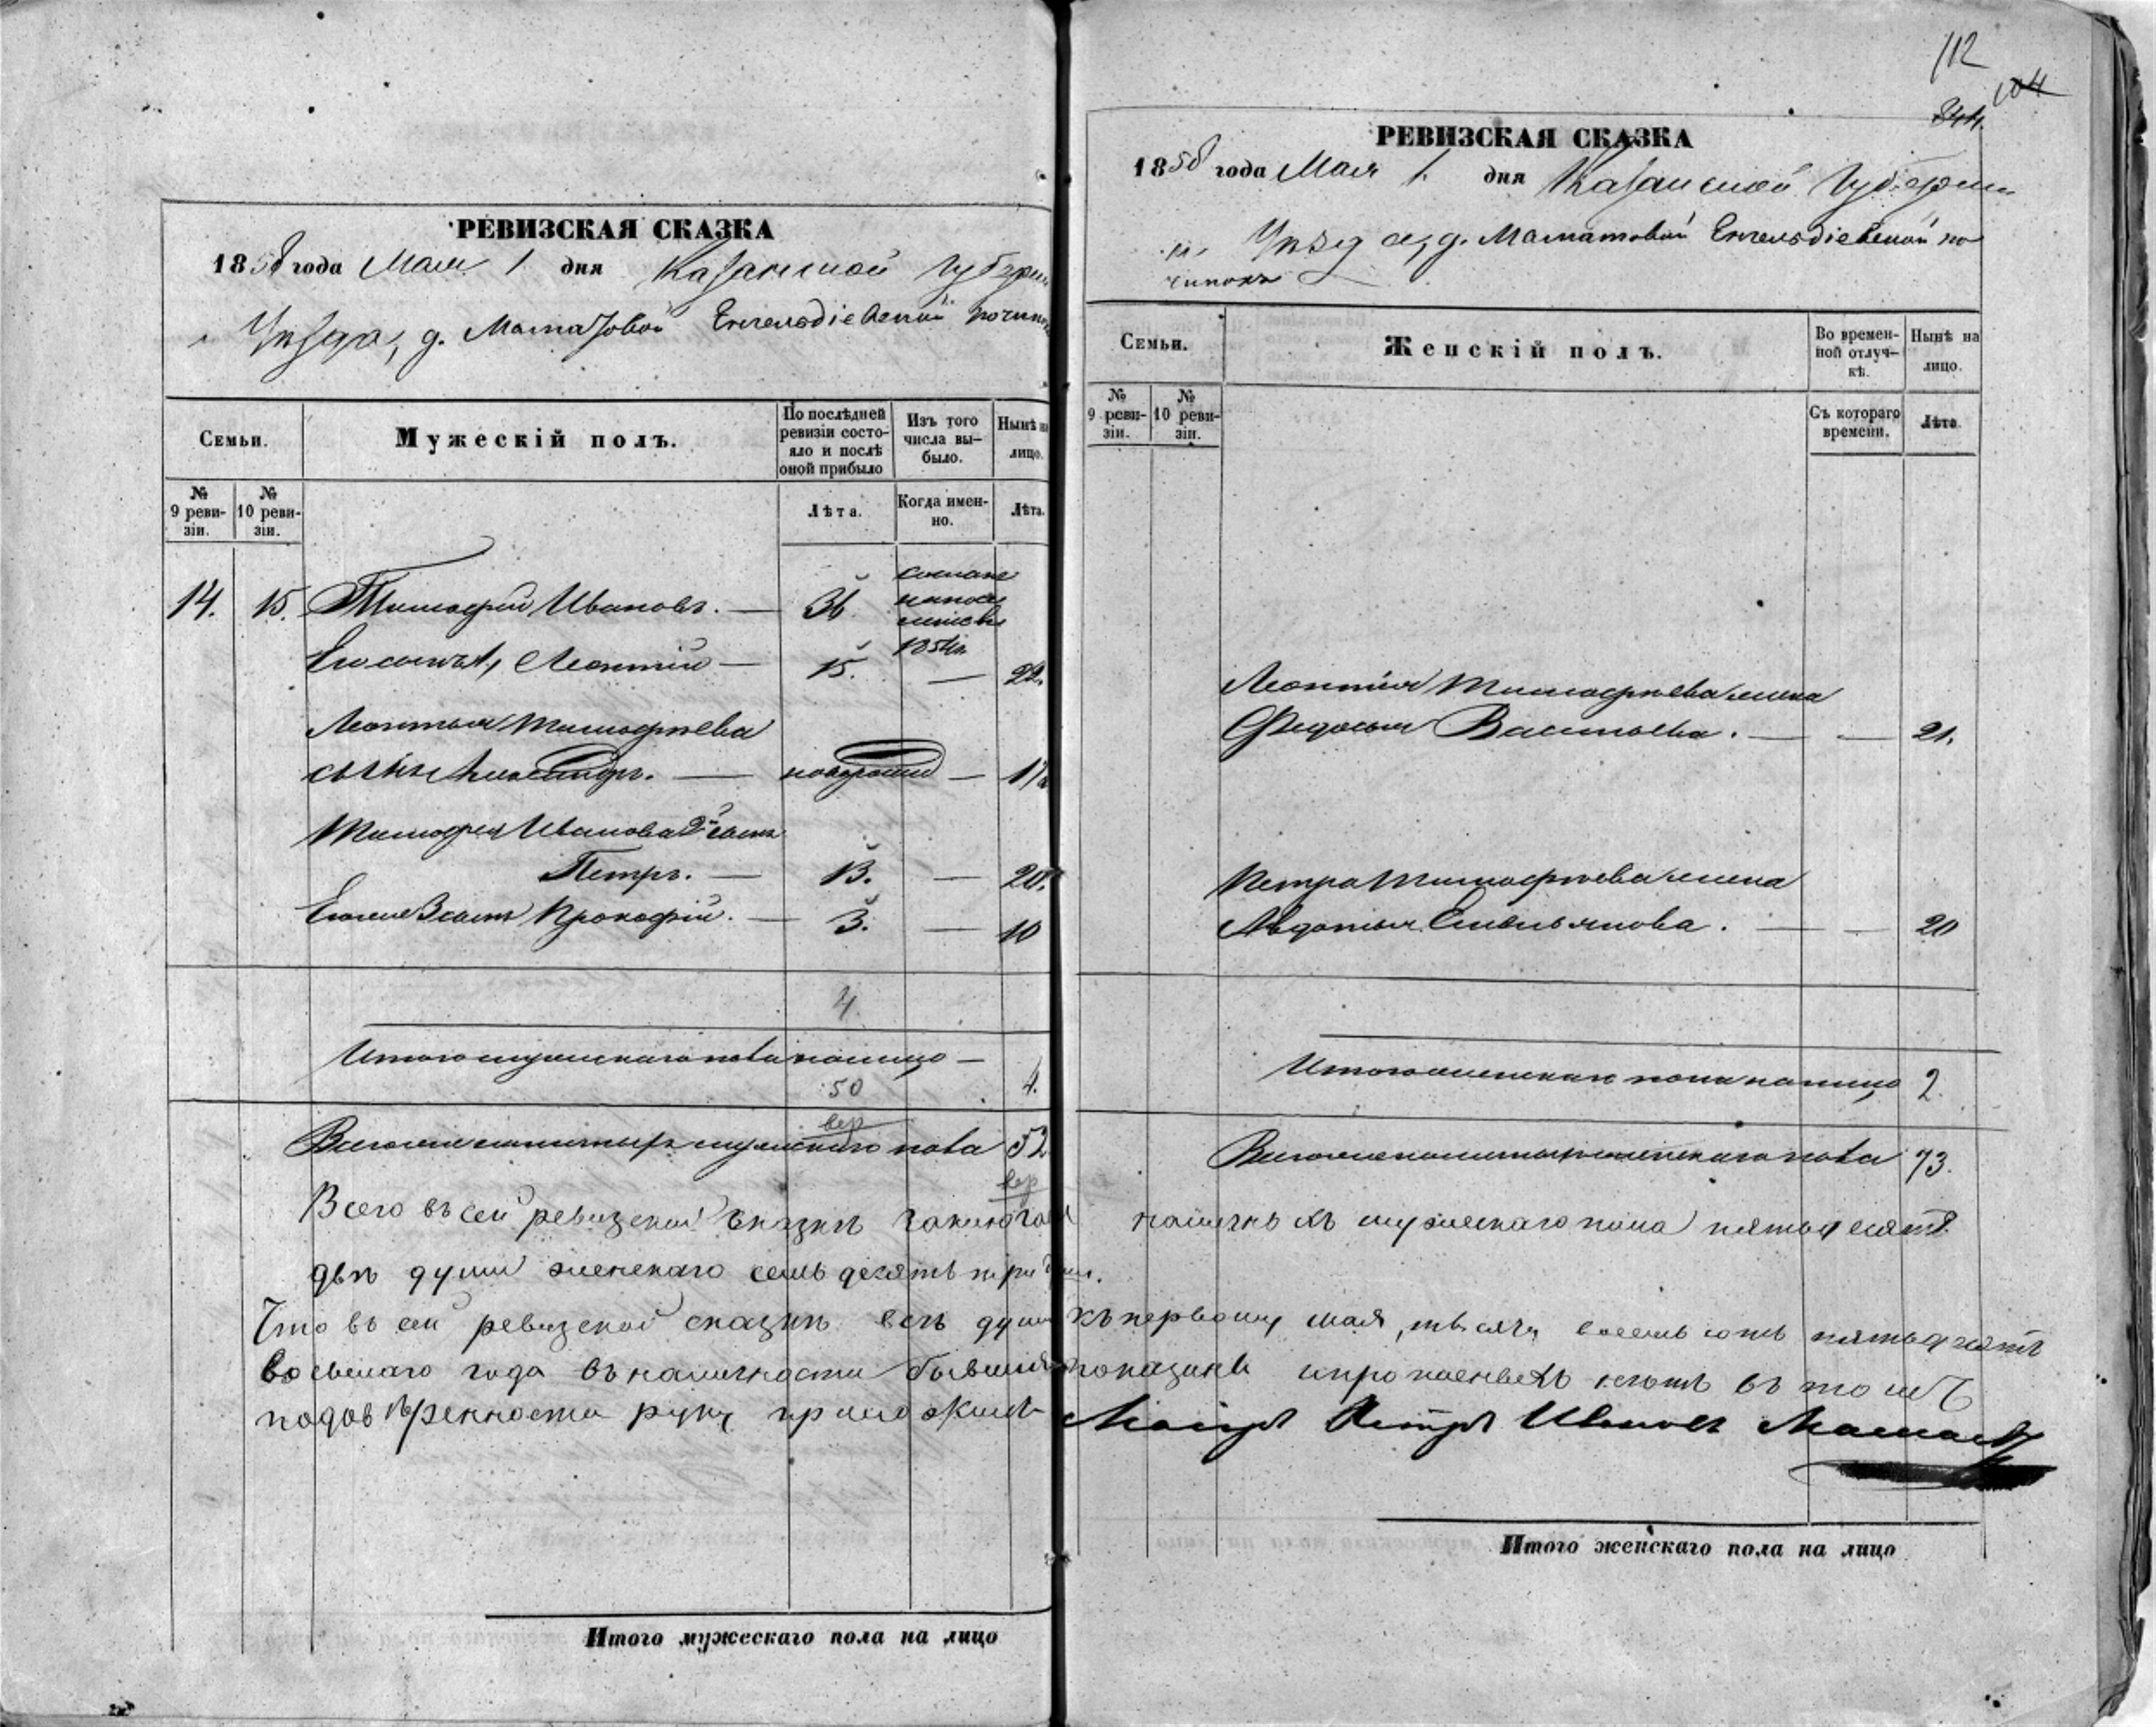 РЕВИЗСКАЯ СКАЗКА
1858 года Мая 1 дня Казанской Губерніи
Уѣзда, д. Маматовой Енгельдіевской починокъ
Семьи.
Мужескій полъ.
По послѣдней ревизіи состояло и послѣ оной прибыло
Изъ того числа выбыло.
Нынѣ на лицо.
№ 9 ревизіи.
№ 10 ревизіи.
Лѣта.
Когда именно.
Лѣта.
14. 15. Тимофей Ивановъ. — 36.
1854
Его сынъ 1, Леонтій — 15. — 22.
Леонтья Тимофѣева
сынъ — — 1/2
Тимофея Иванова 2й сынъ
Петръ. — 13. — 20.
Его же 3 сынъ Прокофій. — 3. — 10
4.
Итого мужескаго пола налицо — 4.
50
вер
Всего же наличныхъ мужескаго пола 52
вер
Всего въ сей ревизской сказкѣ
двѣ души женскаго семьдесятъ три души.
Что въ сей ревизской сказкѣ всѣ души
восьмаго года въ наличности бывшія
подовѣренности руку приложилъ
Итого мужескаго пола на лицо
112
104
844.
РЕВИЗСКАЯ СКАЗКА
1858 года Мая 1. дня Казанской Губерніи
Уѣзда, д. Маматовой Енгельдіевской по
чинокъ
Семьи.
Женскій полъ.
Во временной отлучкѣ.
Нынѣ на лицо.
№ 9 ревизіи.
№ 10 ревизіи.
Съ котораго времени.
Лѣта.
Леонтія Тимофѣева жена
Федосья Васильева. — — 21.
Петра Тимофѣева жена
Авдотья Емельянова. — — 20
Итого женскаго пола налицо 2.
Всего же наличныхъ женскаго пола 73.
наличныхъ мужескаго пола пятьдесятъ
къ первому мая, тысяча восемьсотъ пятьдесятъ
показаны и прописныхъ нѣтъ въ томъ
Петръ Ивановъ
Итого женскаго пола на лицо